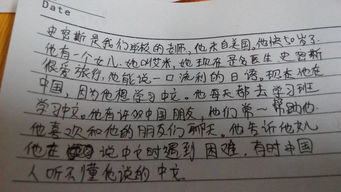 Date
史密斯是我们学校的老师,他来自美国。他快50岁了
他有一个女儿,她叫艾米,她现在是名医生 史密斯
很爱旅行,他能说一口流利的日语。现在他在
中国,因为他想学习中文。他每天都去学习班
学习中文。他有许多中国朋友,他们常一帮助他
他喜欢和他的朋友们聊天。他告诉他女儿
他在 说中文时遇到困难,有时中国
人听不懂他说的中文